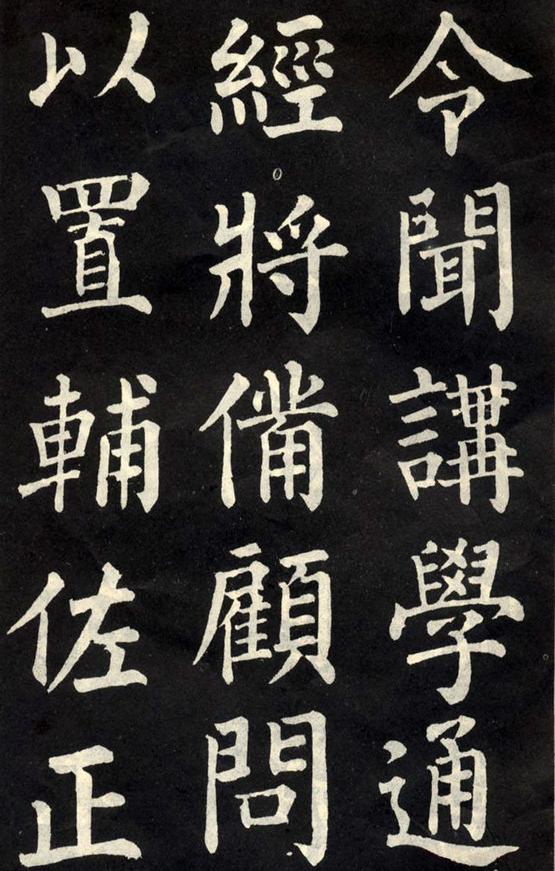 令聞講學通
經將備顧問
以置輔佐正